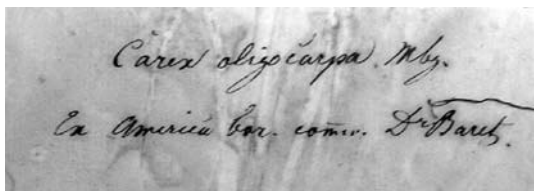 Carex oligocarpa. Mbg.
Ex America bor. com̄. Dr Baret.